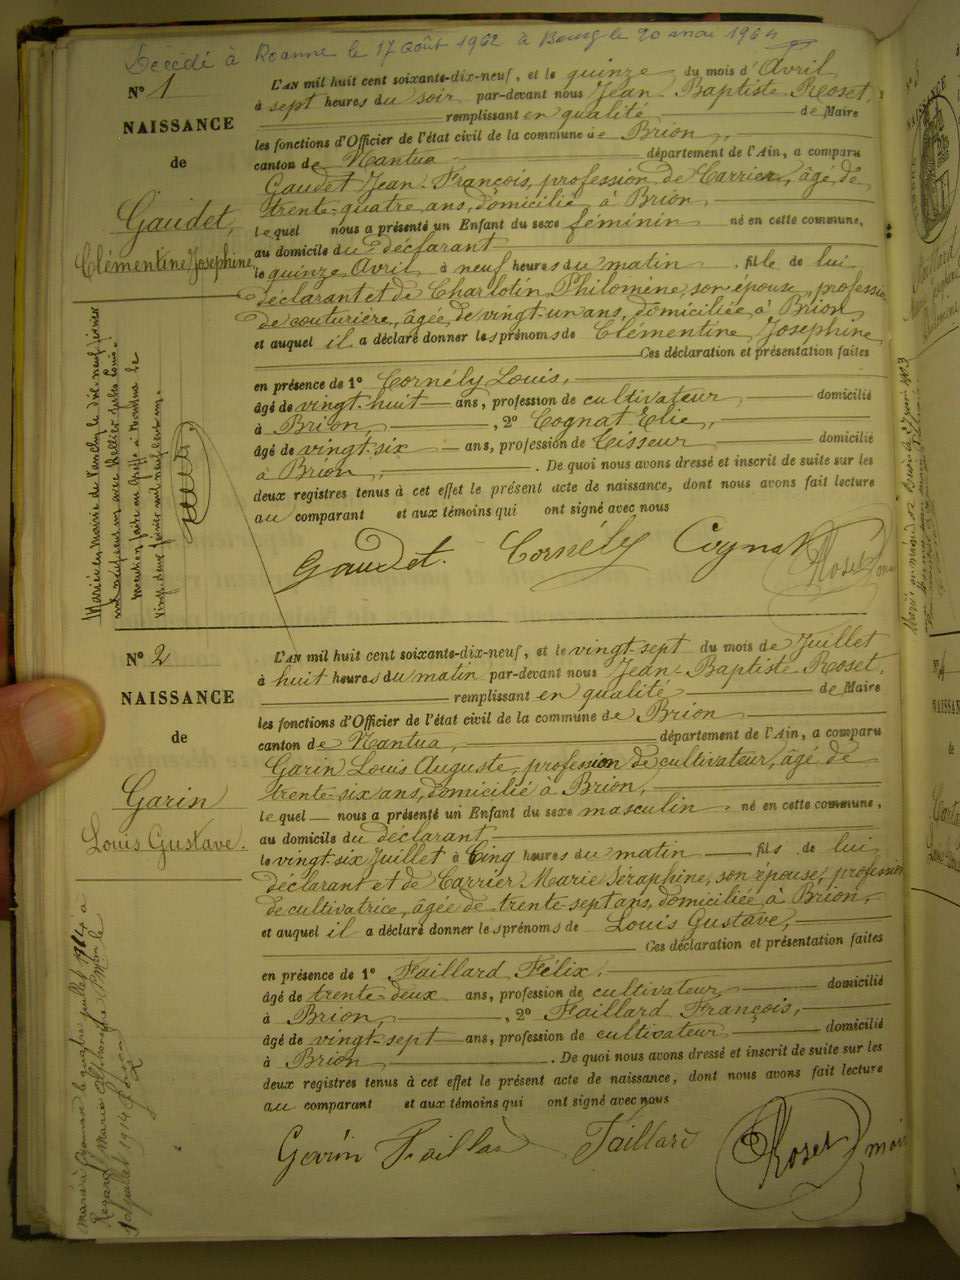 Décédé à Roanne le 17 Août 1962 à Bourg le 20 mai 1964
N° 1
NAISSANCE
de
Gaudet,
Clémentine Josephine
L'AN mil huit cent soixante-dix-neuf, et le quinze du mois d'Avril
à sept heures du soir par-devant nous Jean-Baptiste Roset,
remplissant en qualité de Maire
les fonctions d'Officier de l'état civil de la commune de Brion,
canton de Nantua département de l'Ain, a comparu
Gaudet Jean-François, profession de Carrier, âgé de
trente-quatre ans, domicilié à Brion
lequel nous a présenté un Enfant du sexe féminin né en cette commune,
au domicile du déclarant
le quinze Avril à neuf heures du matin, fille de lui
déclarant et de Charlotin Philomène, son épouse, profession
de couturière, âgée de vingt-un ans, domiciliée à Brion,
et auquel il a déclaré donner les prénoms de Clémentine Josephine
Ces déclaration et présentation faites
en présence de 1° Cornély Louis,
âgé de vingt-huit ans, profession de cultivateur domicilié
à Brion, , 2° Cognat Elie,
âgé de vingt-six ans, profession de Tisseur domicilié
à Brion, . De quoi nous avons dressé et inscrit de suite sur les
deux registres tenus à cet effet le présent acte de naissance, dont nous avons fait lecture
au comparant et aux témoins qui ont signé avec nous
Gaudet. Cornély Cognat Roset
Mariée en Mairie de le dix-neuf février
mil neuf cent un avec
Mention faite au Greffe à Nantua le
vingt-deux février mil neuf cent un.
N° 2
NAISSANCE
de
Garin
Louis Gustave.
L'AN mil huit cent soixante-dix-neuf, et le vingt-sept du mois de Juillet
à huit heures du matin par-devant nous Jean-Baptiste Roset,
remplissant en qualité de Maire
les fonctions d'Officier de l'état civil de la commune de Brion
canton de Nantua, département de l'Ain, a comparu
Garin Louis Auguste, profession de cultivateur, âgé de
trente-six ans, domicilié à Brion,
lequel nous a présenté un Enfant du sexe masculin, né en cette commune,
au domicile du déclarant
le vingt-six Juillet à Cinq heures du matin fils de lui
déclarant et de Carrier Marie Séraphine, son épouse, profession
de cultivatrice, âgée de trente-sept ans, domiciliée à Brion,
et auquel il a déclaré donner les prénoms de Louis Gustave,
Ces déclaration et présentation faites
en présence de 1° Faillard Félix,
âgé de trente-deux ans, profession de cultivateur domicilié
à Brion, , 2° Faillard François,
âgé de vingt-sept ans, profession de cultivateur domicilié
à Brion, . De quoi nous avons dressé et inscrit de suite sur les
deux registres tenus à cet effet le présent acte de naissance, dont nous avons fait lecture
au comparant et aux témoins qui ont signé avec nous
Garin Faillard Faillard Roset maire
Marié à le quatre juillet 1914 à
Marie
juillet 1914